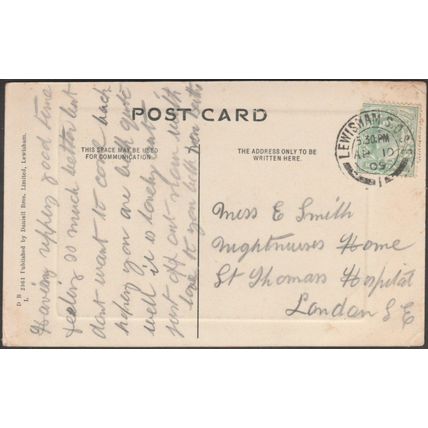 POST CARD
THIS SPACE MAY BE USED
FOR COMMUNICATION
THE ADDRESS ONLY TO BE
WRITTEN HERE.
Having ripping good time
feeling so much better but
dont want to come back
hoping you are both quite
well it is lonely at
just off out again with
love to you both from
Miss E Smith
Nightnurses Home
St Thomas's Hospital
London S E
LEWISHAM S.O. S.E.
5.30 PM
AP 10
09
D B 2361 Published by Dunsell Bros. Limited, Lewisham.
L.